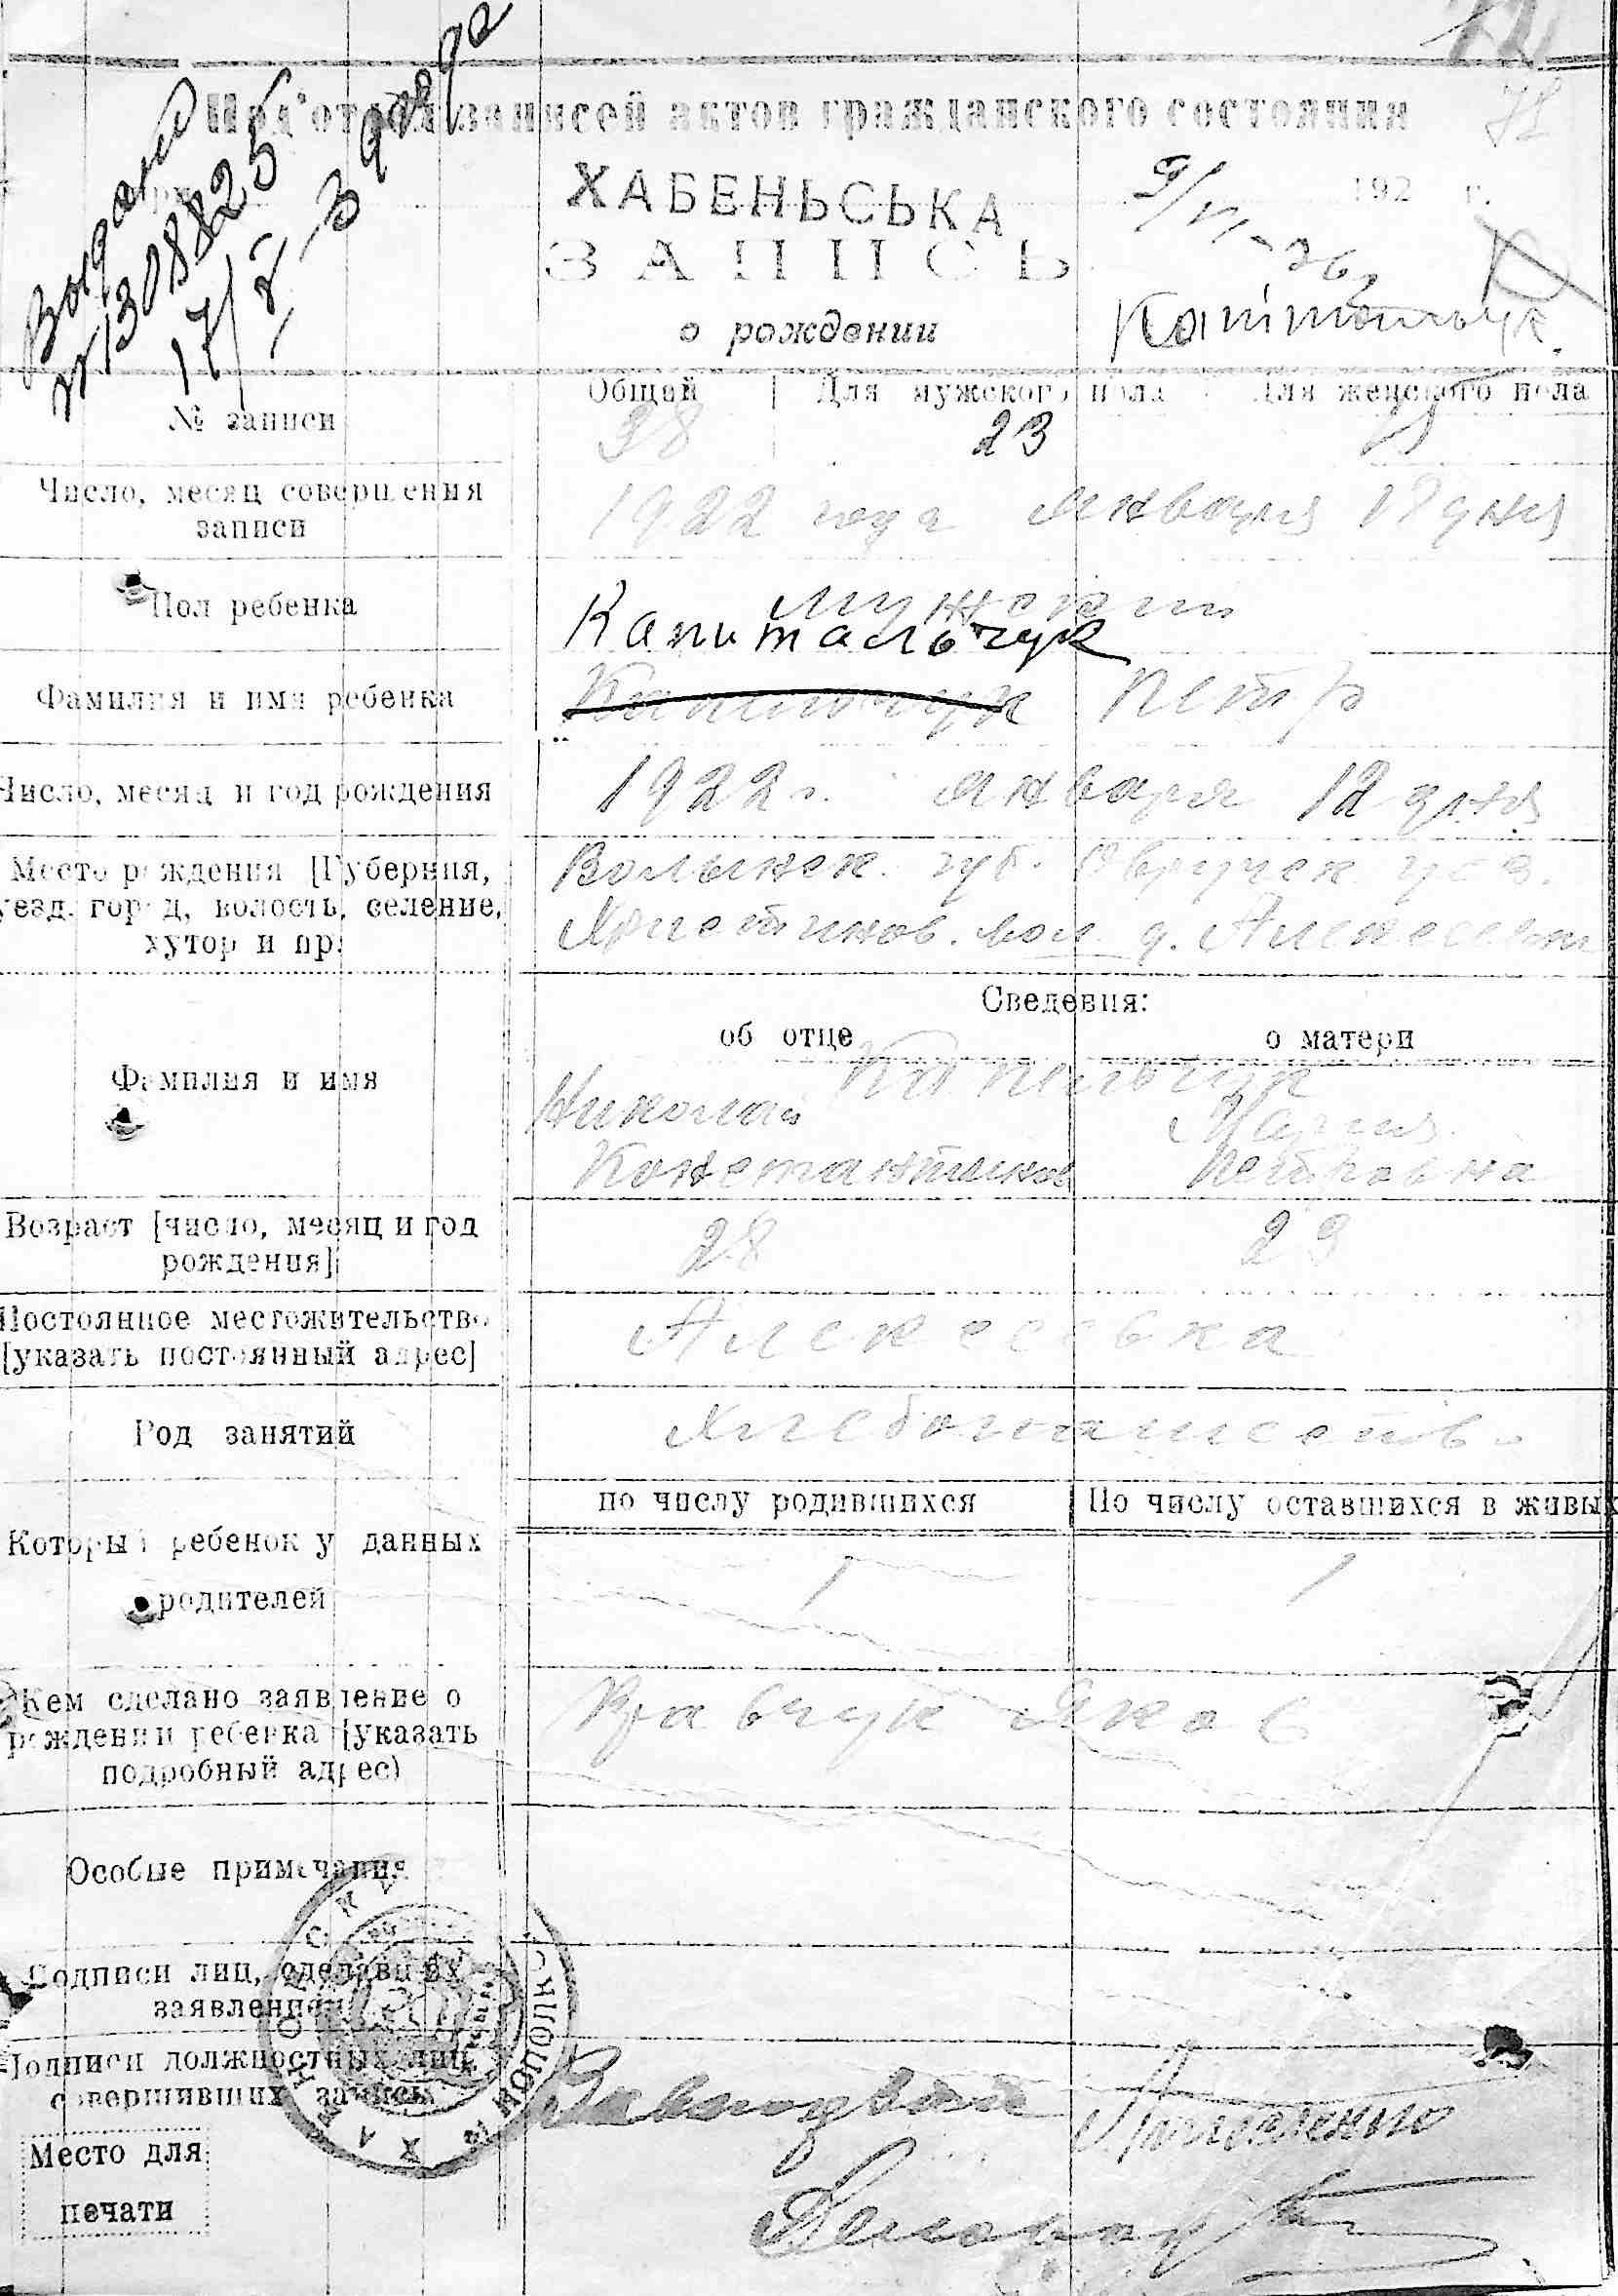 Под'отдел записей актов гражданского состояния
Выдано
№ 1308825
ХАБЕНЬСЬКА
192 г.
ЗАПИСЬ
о рождении
Общий Для мужского пола Для женского пола
№ записи 38 23
Число, месяц совершения
записи
1922 года января 17 дня
Пол ребенка мужской
Капитальчук
Фамилия и имя ребенка Капельчук Петр
Число, месяц и год рождения 1922 г. января 12 дня
Место рождения [Губерния,
уезд, город, волость, селение,
хутор и пр.
Волынск. губ. Овручск. уез.
Христинов. вол. д. Алексеевка
Сведения:
об отце о матери
Фамилия и имя
Капельчук
Николай Мария
Константинов Петровна
Возраст [число, месяц и год
рождения]
28 23
Постоянное местожительство
[указать постоянный адрес]
Алексеевка
Род занятий Хлебопашество
по числу родившихся По числу оставшихся в живых
Который ребенок у данных
родителей
1 1
Кем сделано заявление о
рождении ребенка [указать
подробный адрес)
Кравчук Яков
Особые примечания
Подписи лиц, сделавших
заявление
Подписи должностных лиц,
совершивших запись
Место для
печати